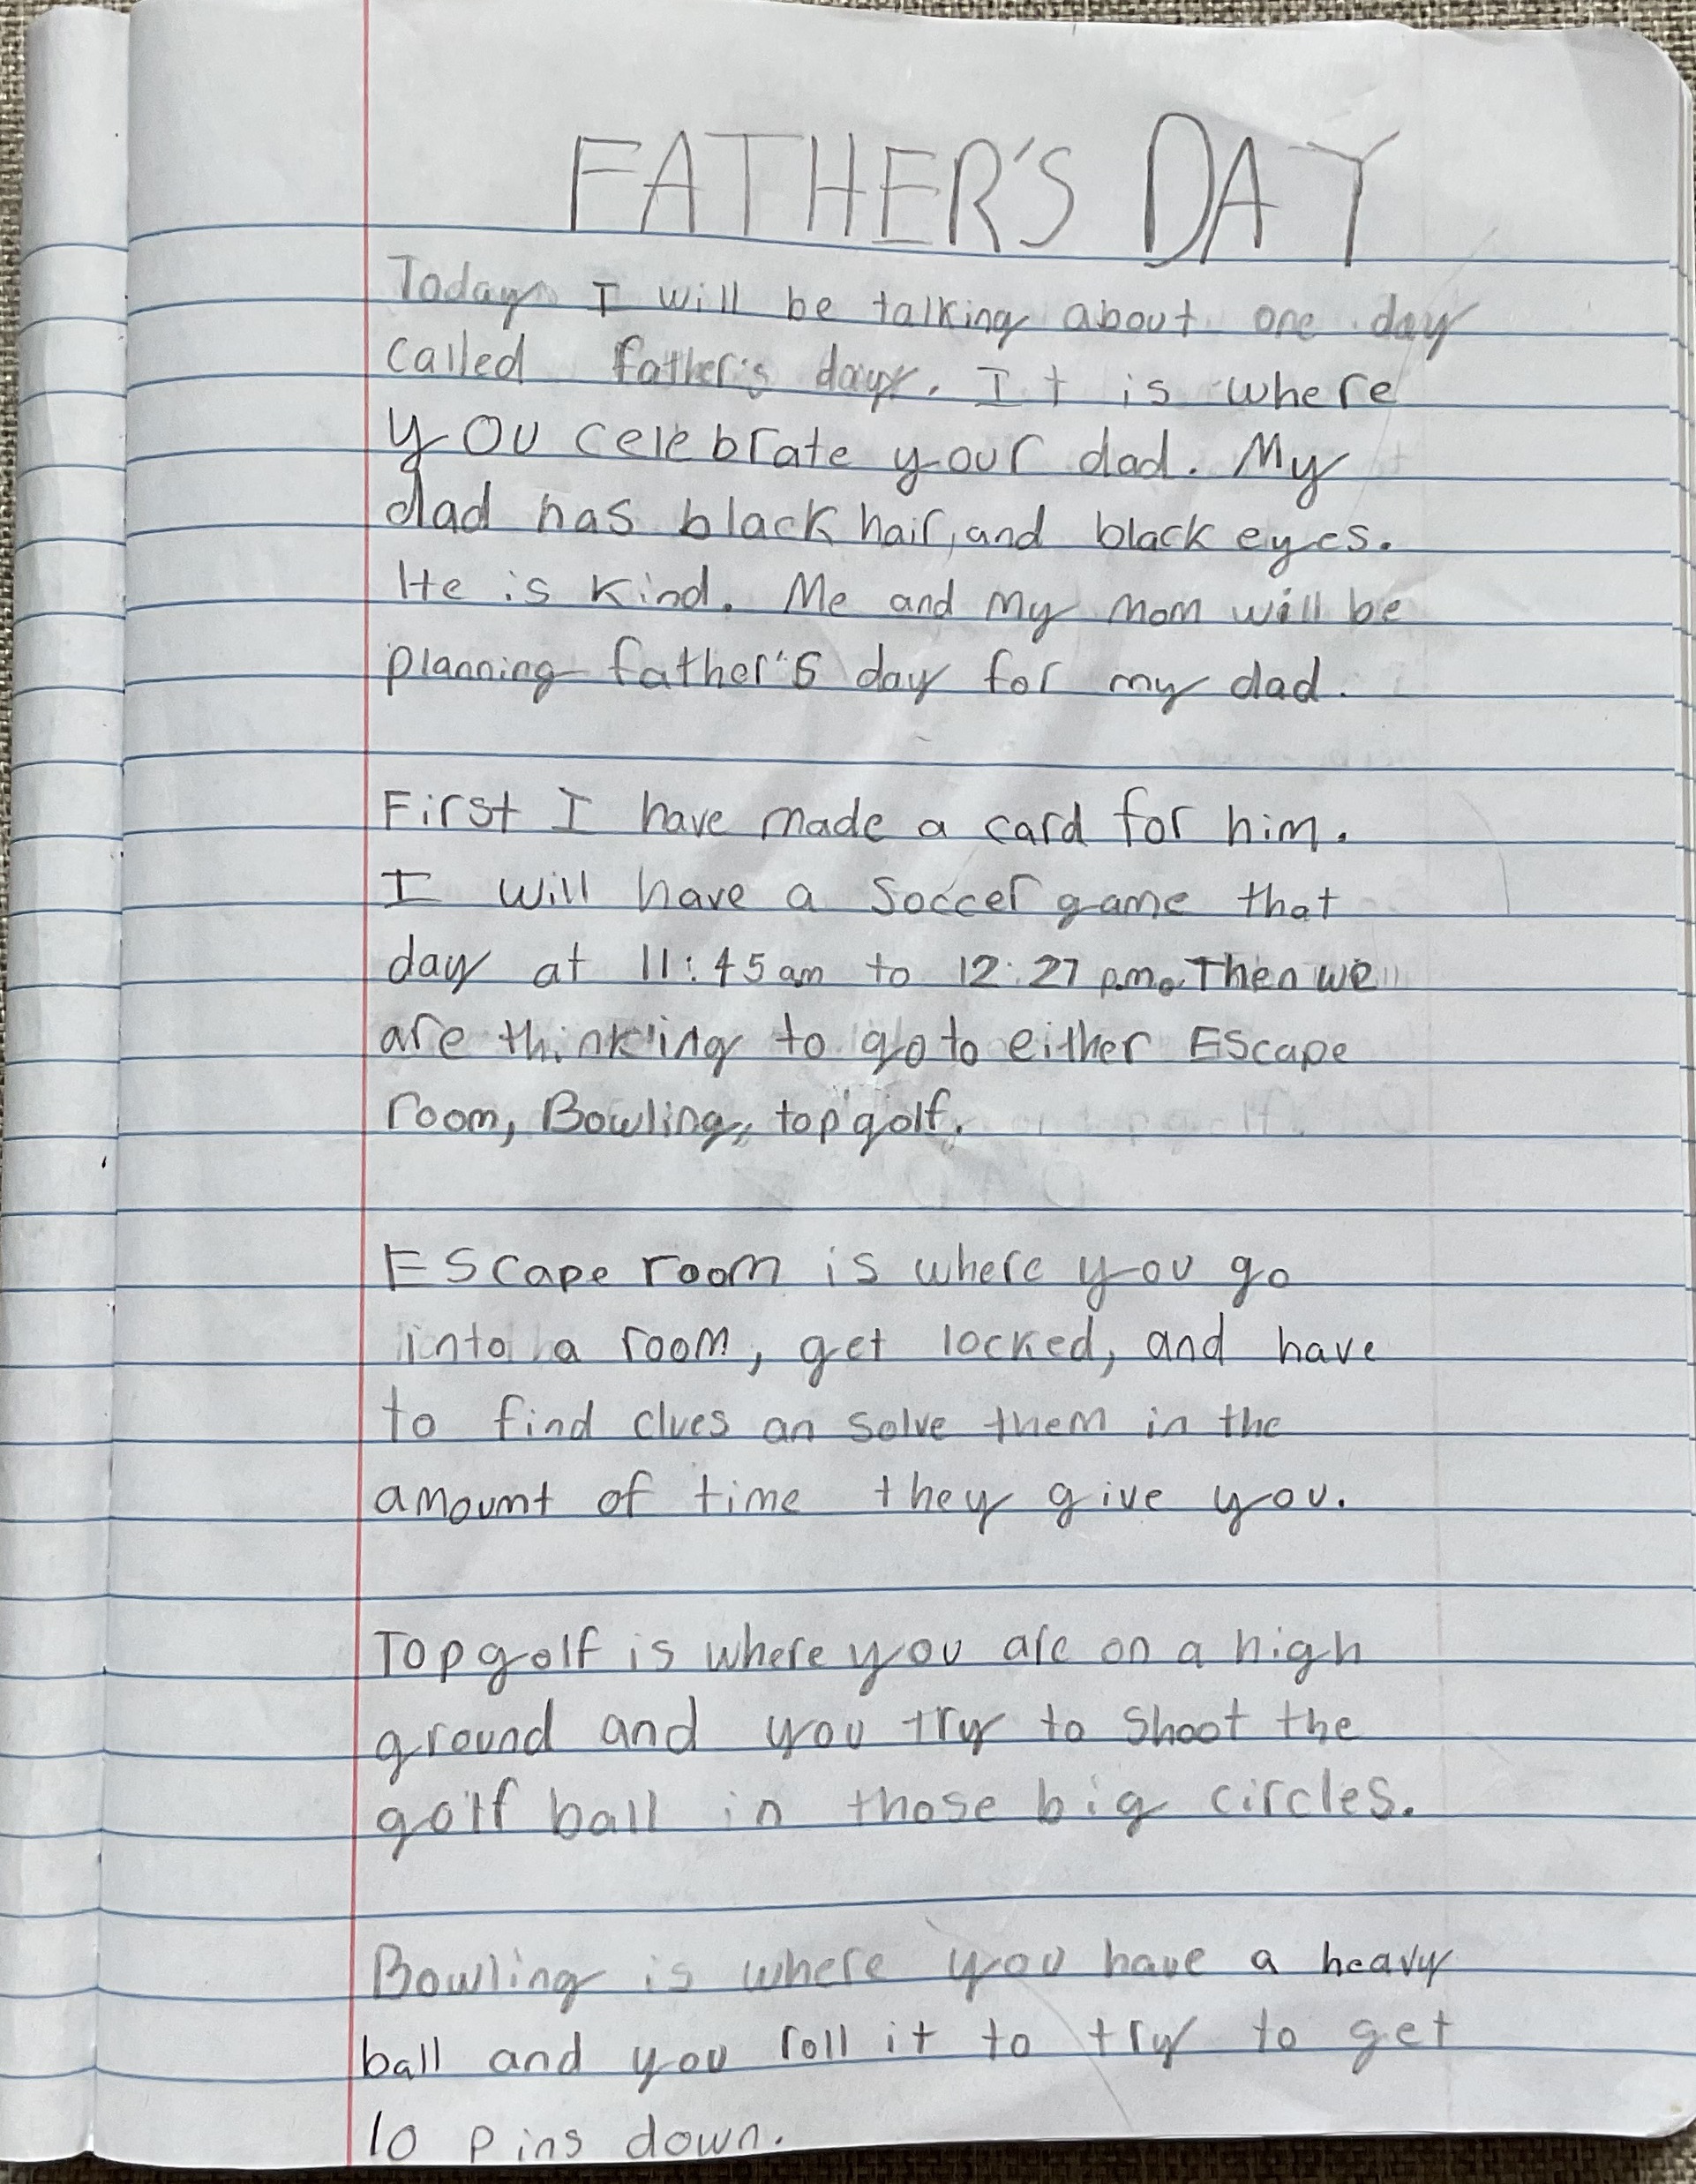 FATHER'S DAY
Today I will be talking about one day
called father's day. It is where
you celebrate your dad. My
dad has black hair, and black eyes.
He is kind. Me and my mom will be
planning father's day for my dad.
First I have made a card for him.
I will have a soccer game that
day at 11:45 am to 12:27 p.m. Then we
are thinking to go to either Escape
room, Bowling, topgolf.
Escape room is where you go
into a room, get locked, and have
to find clues an solve them in the
amount of time they give you.
Topgolf is where you are on a high
ground and you try to shoot the
golf ball in those big circles.
Bowling is where you have a heavy
ball and you roll it to try to get
10 pins down.